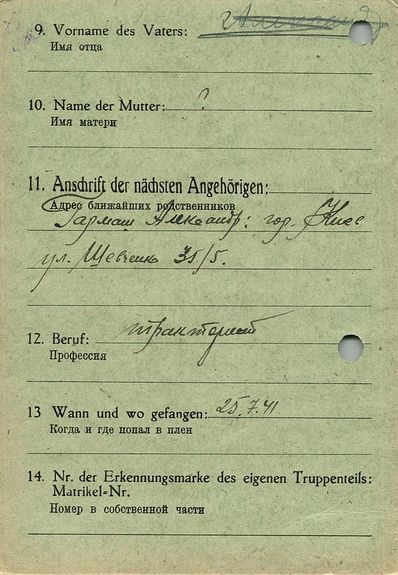 9. Vorname des Vaters: Александр
Имя отца
10. Name der Mutter: ?
Имя матери
11. Anschrift der nächsten Angehörigen:
Адрес ближайших родственников
Гармаш Александр: гор. Киев
ул. Шевченко 35/5.
12. Beruf: тракторист
Профессия
13 Wann und wo gefangen: 25.7.41
Когда и где попал в плен
14. Nr. der Erkennungsmarke des eigenen Truppenteils:
Matrikel-Nr.
Номер в собственной части